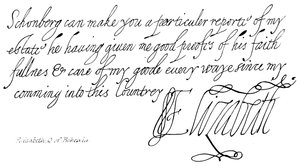 Schonberg can make you a particuler reporte of my
estate he having given me good profs of his faith
fullnes & care of my goode every waye since my
comming into this Countrey
Elizabeth
Elizabeth Q of Bohemia